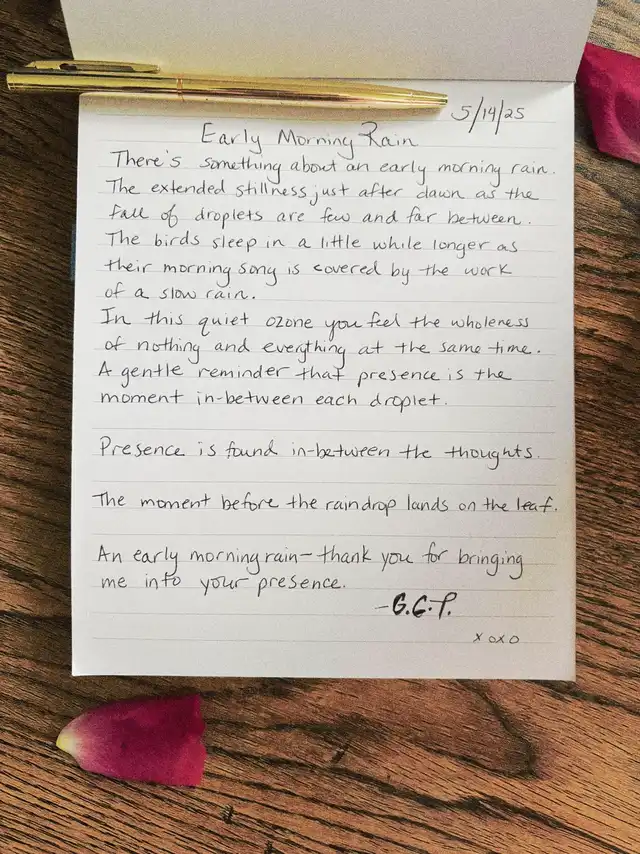 5/14/25
Early Morning Rain
There's something about an early morning rain.
The extended stillness just after dawn as the
fall of droplets are few and far between.
The birds sleep in a little while longer as
their morning song is covered by the work
of a slow rain.
In this quiet ozone you feel the wholeness
of nothing and everything at the same time.
A gentle reminder that presence is the
moment in-between each droplet.
Presence is found in-between the thoughts.
The moment before the raindrop lands on the leaf.
An early morning rain—thank you for bringing
me into your presence.
-G.G.P.
xoxo